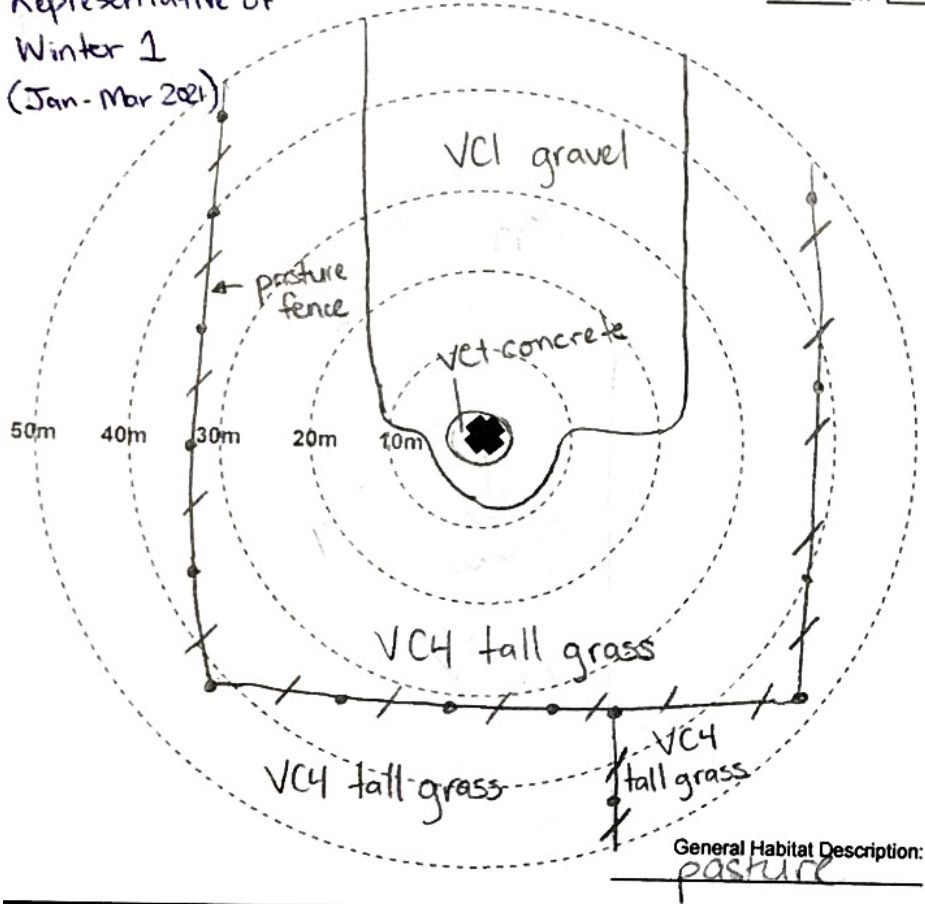 Representative of
Winter 1
(Jan - Mar 2021)
VC1 gravel
pasture
fence
concrete
50m 40m 30m 20m 10m
VC4 tall grass
VC4 tall grass
VC4
tall grass
General Habitat Description:
pasture